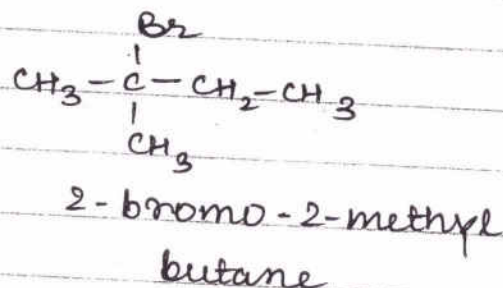 Br
CH3 - C - CH2 - CH3
CH3
2 - bromo - 2 - methyl
butane